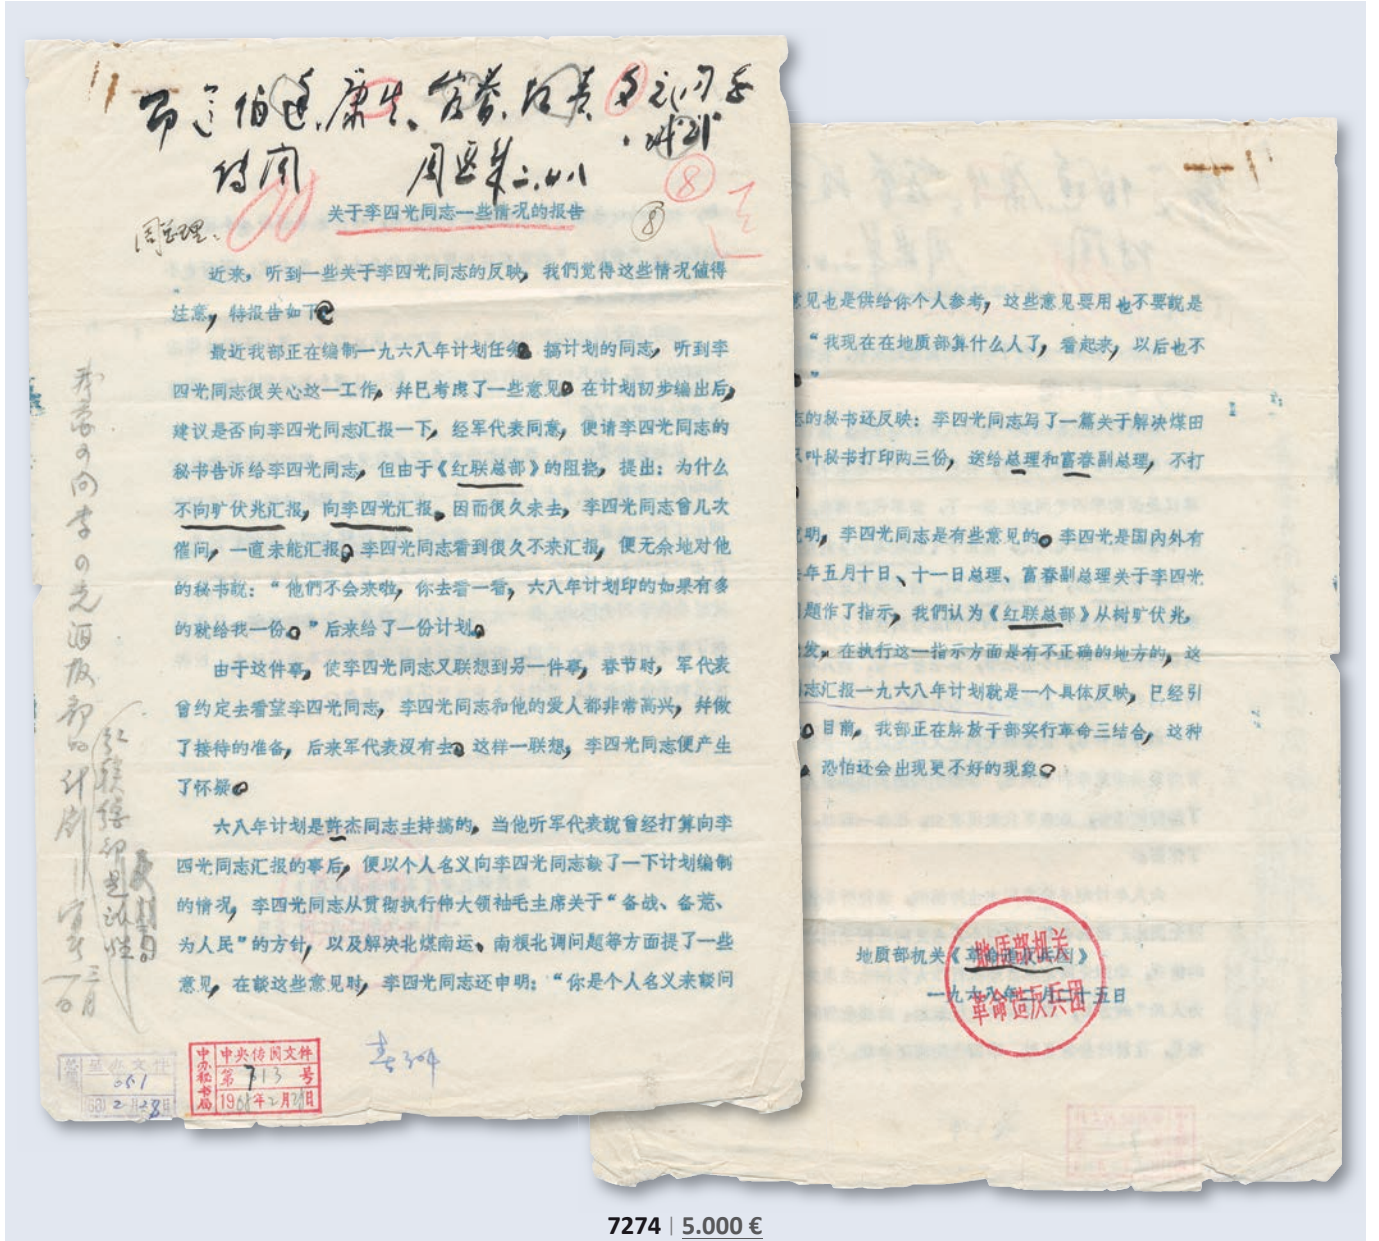 伯达、康生、富春、
传阅 周恩来 二、廿八
关于李四光同志一些情况的报告
⑧
⑧
周总理：
近来，听到一些关于李四光同志的反映，我們觉得这些情况値得
注意，特报告如下
最近我部正在编制一九六八年计划任务。搞计划的同志，听到李
四光同志很关心这一工作，幷已考虑了一些意见。在计划初步编出后，
建议是否向李四光同志汇报一下，经军代表同意，便请李四光同志的
秘书告诉给李四光同志，但由于《红联总部》的阻挠，提出：为什么
不向旷伏兆汇报，向李四光汇报。因而很久未去，李四光同志曾几次
催问，一直未能汇报。李四光同志看到很久不来汇报，便无余地对他
的秘书説：“他們不会来啦，你去看一看，六八年计划印的如果有多
的就给我一份。”后来给了一份计划。
由于这件事，使李四光同志又联想到另一件事，春节时，军代表
曾约定去看望李四光同志，李四光同志和他的爱人都非常高兴，幷做
了接待的准备，后来军代表没有去。这样一联想，李四光同志便产生
了怀疑。
六八年计划是許杰同志主持搞的，当他听军代表説曾经打算向李
四光同志汇报的事后，便以个人名义向李四光同志談了一下计划编制
的情况，李四光同志从贯彻执行伟大领袖毛主席关于“备战、备荒、
为人民”的方针，以及解决北煤南运、南粮北调问题等方面提了一些
意见，在談这些意见时，李四光同志还申明：“你是个人名义来談问
呈办文件
651
(68) 2月28日
中办秘书局
中央传阅文件
第713号
1968年2月28日
意见也是供给你个人参考，这些意见要用也不要説是
“我现在在地质部算什么人了，看起来，以后也不
”
志的秘书还反映：李四光同志写了一篇关于解决煤田
叫秘书打印两三份，送给总理和富春副总理，不打
明，李四光同志是有些意见的。李四光是国内外有
年五月十日、十一日总理、富春副总理关于李四光
题作了指示，我們认为《红联总部》从树旷伏兆，
发，在执行这一指示方面是有不正确的地方的，这
志汇报一九六八年计划就是一个具体反映，已经引
。目前，我部正在解放干部实行革命三结合，这种
，恐怕还会出现更不好的现象。
地质部机关《革命造反兵团》
一九六八年二月二十五日
地质部机关
革命造反兵团
7274 | 5.000 €